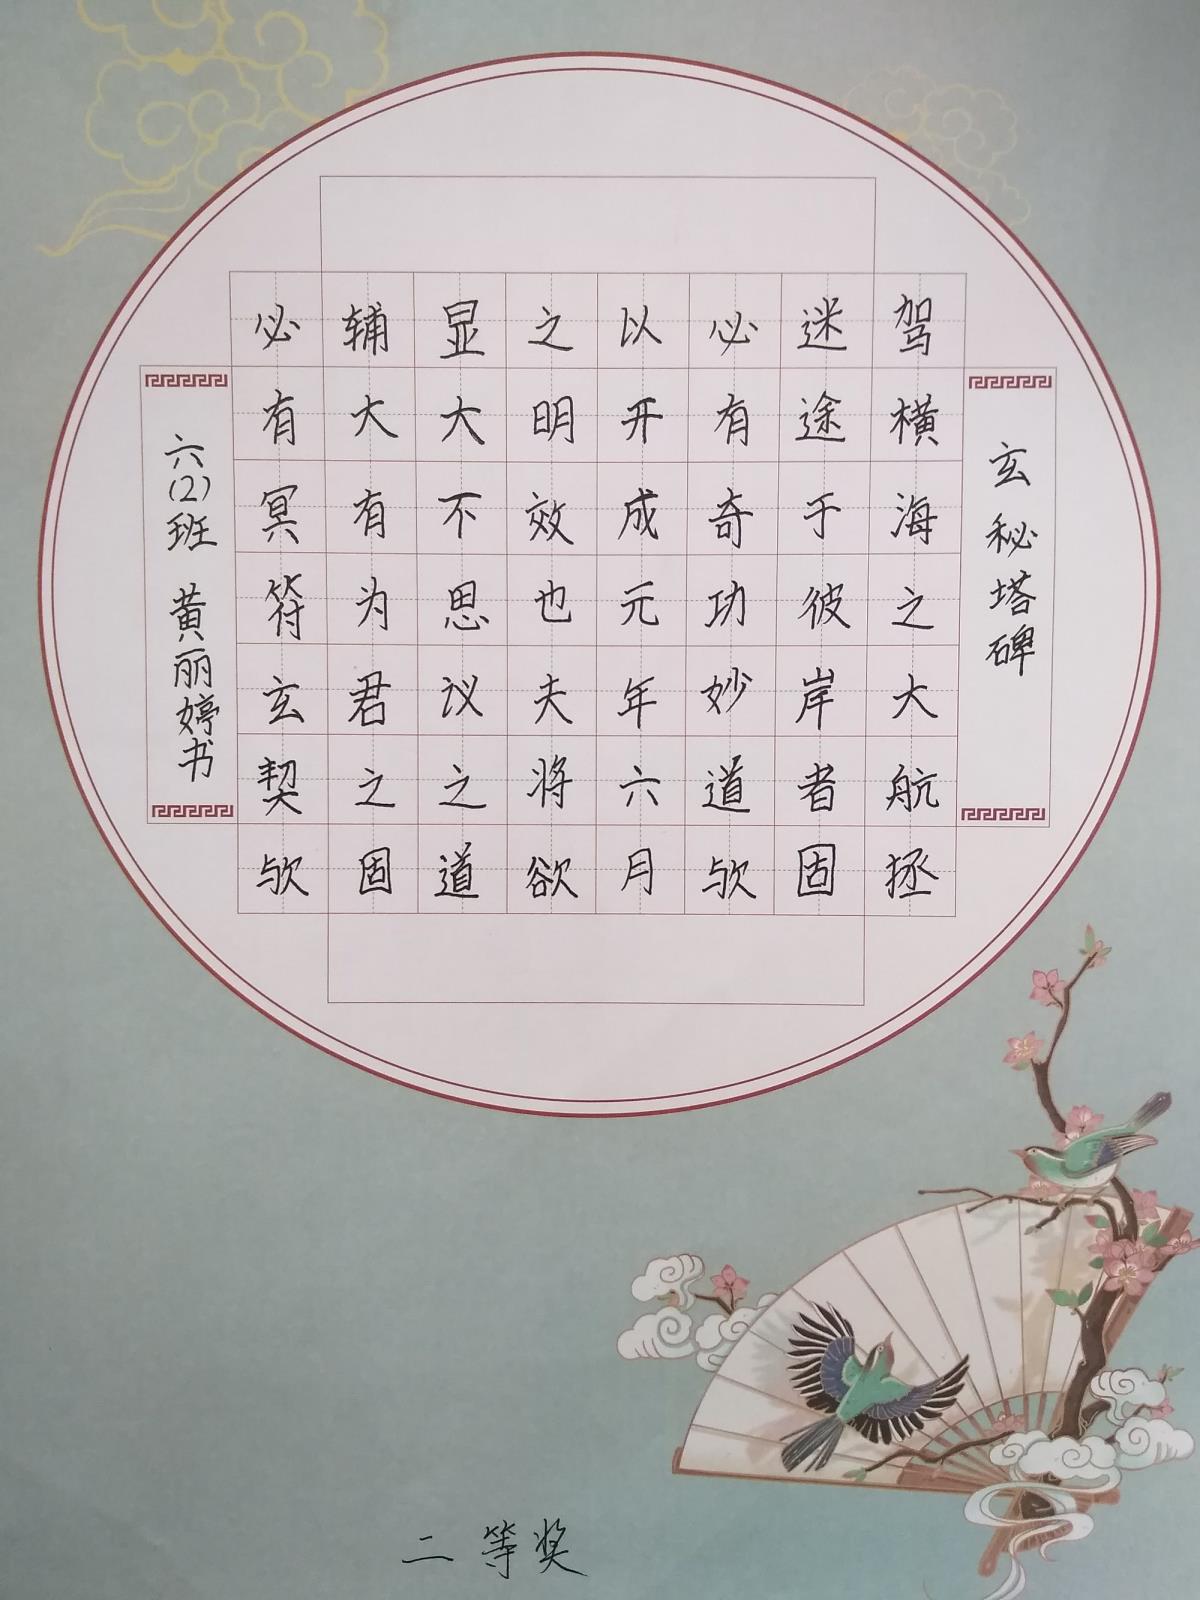 玄秘塔碑
驾横海之大航拯
迷途于彼岸者固
必有奇功妙道欤
以开成元年六月
之明效也夫将欲
显大不思议之道
辅大有为君之固
必有冥符玄契欤
六(2)班 黄丽婷书
二等奖